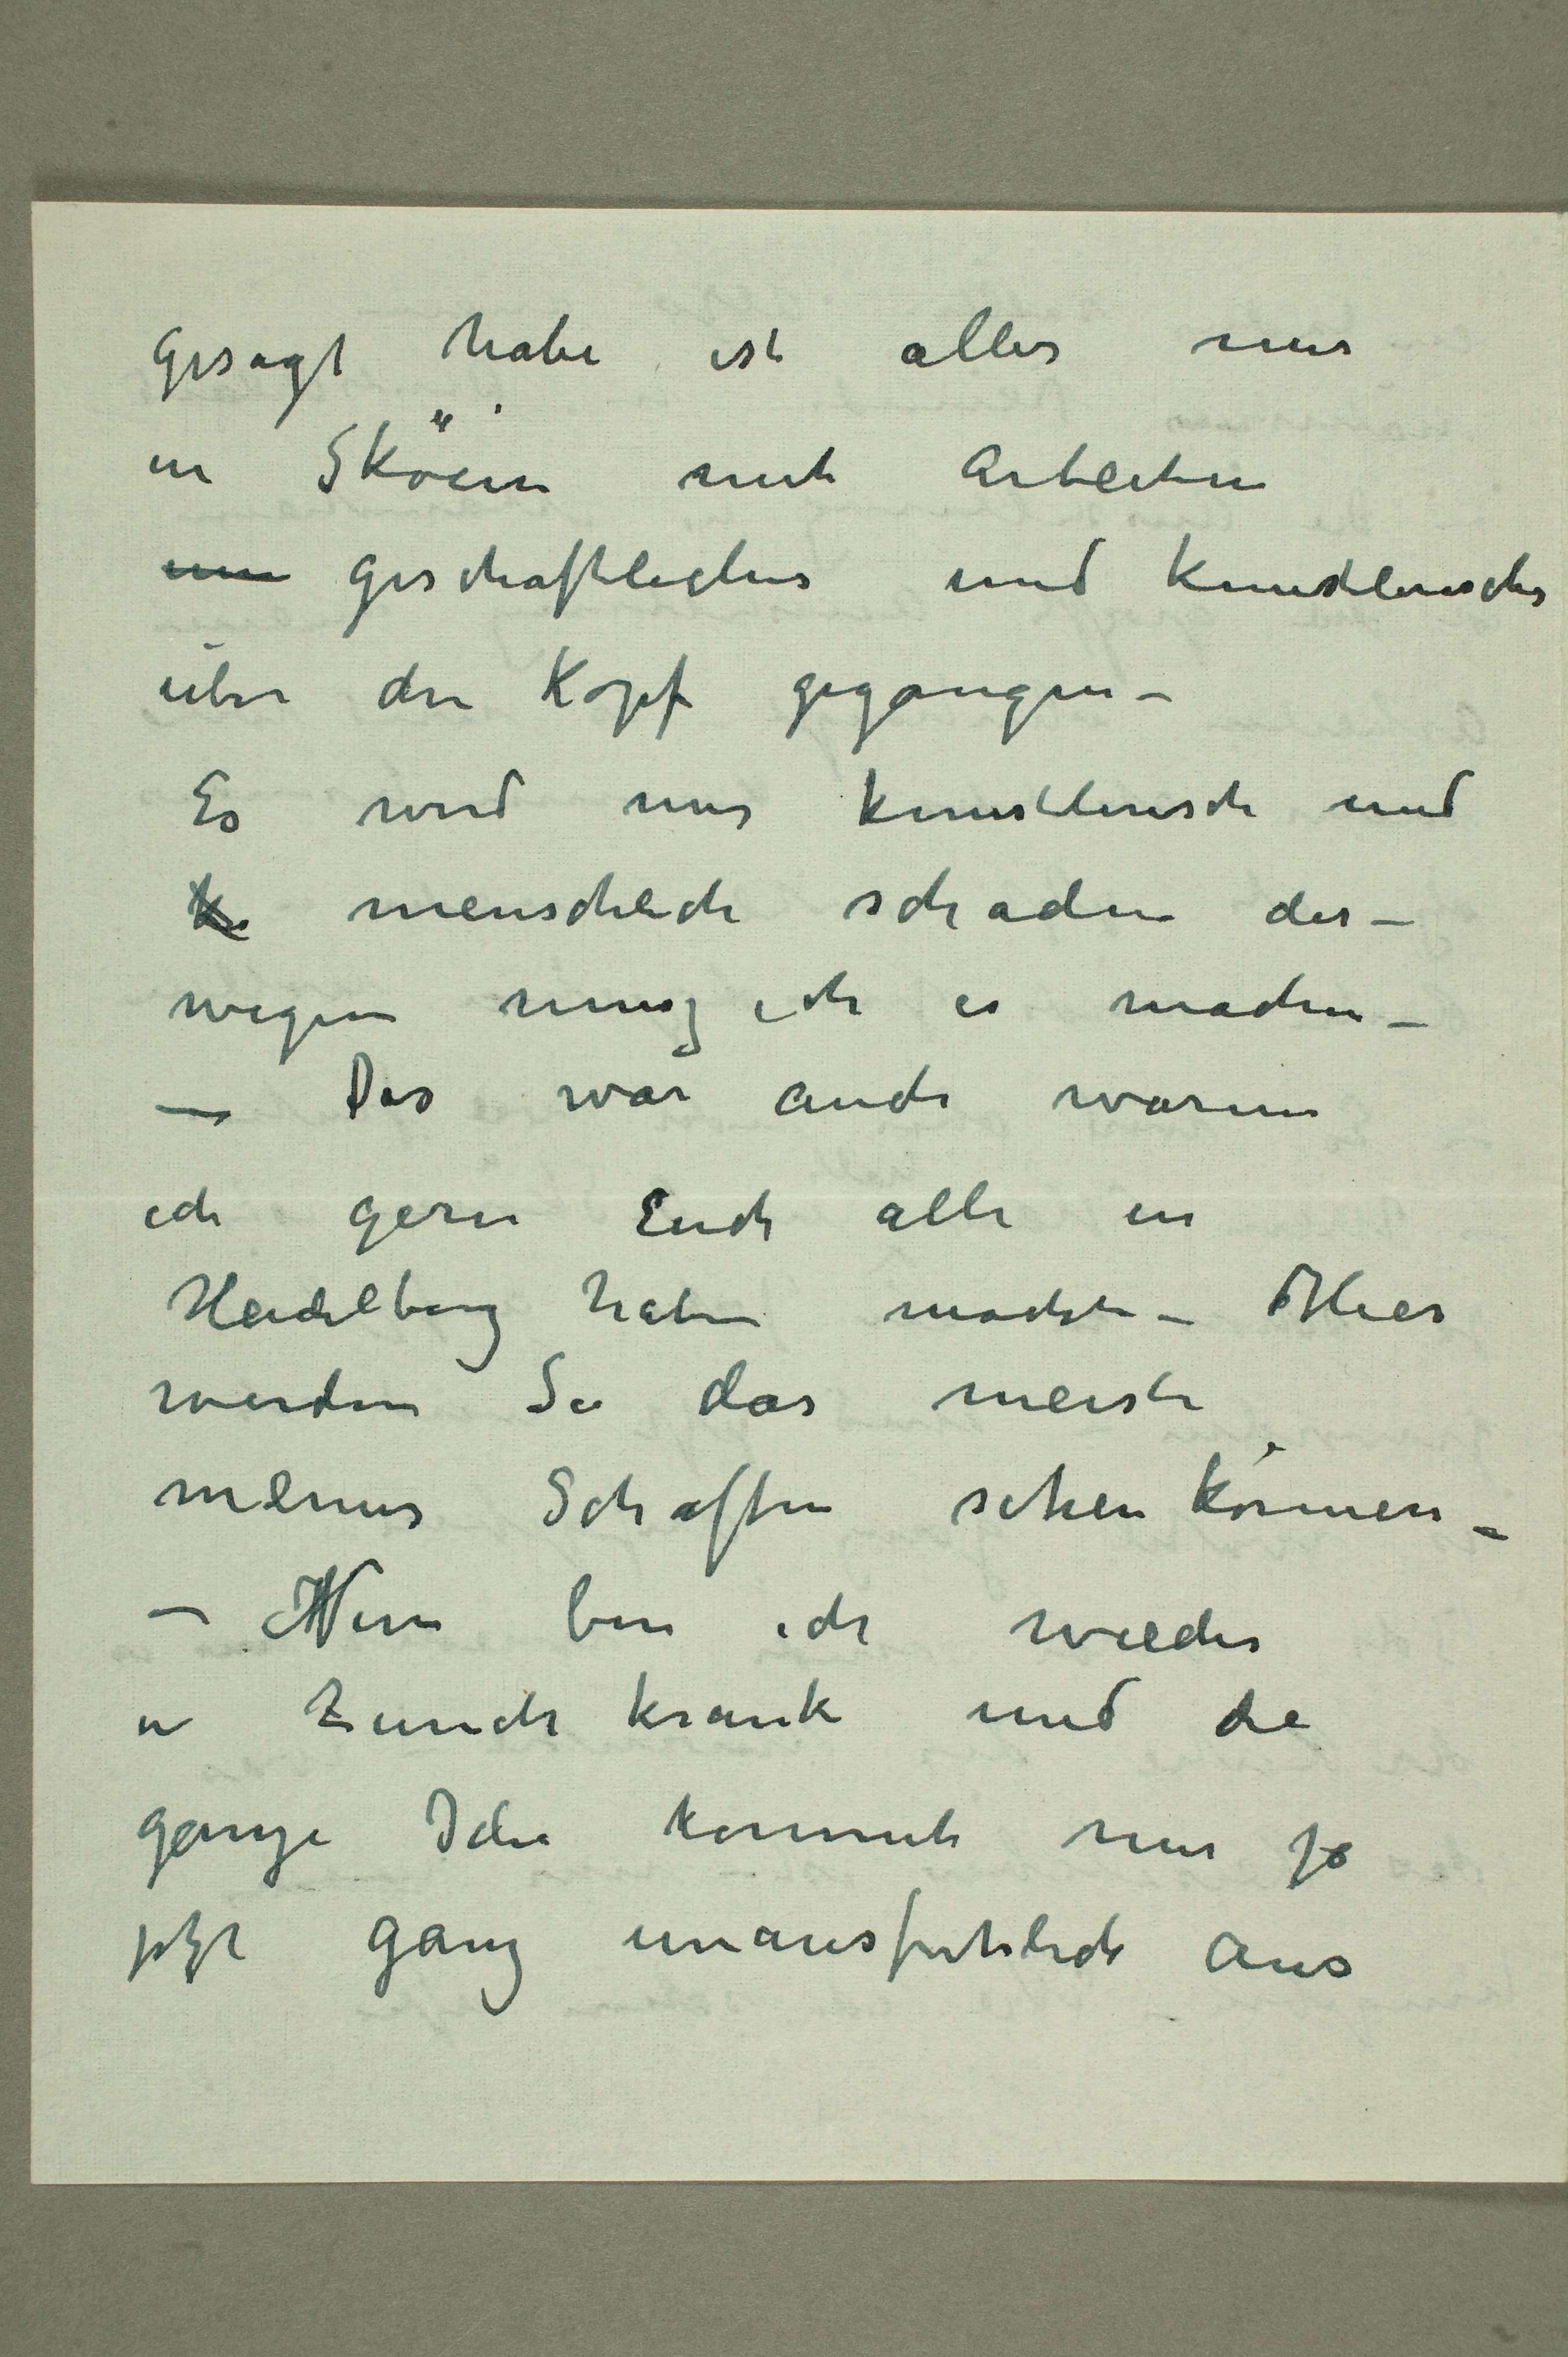 gesagt habe ist alles mir
in Sköien mit Arbeiten
geschäftliches und künstlerisches
über den Kopf gegangen –
Es wird mir künstlerisch und
menschlich schaden des –
wegen musz ich es machen –
– Das war auch warum
ich gern Euch alle in
Heidelberg haben mochte – Hier
werden Sie das meiste
meines Schaffen sehen können –
– Nun bin ich wieder
in Zürich krank und die
ganze Idee kommt mir ja
jetzt ganz unausfuhrlich aus